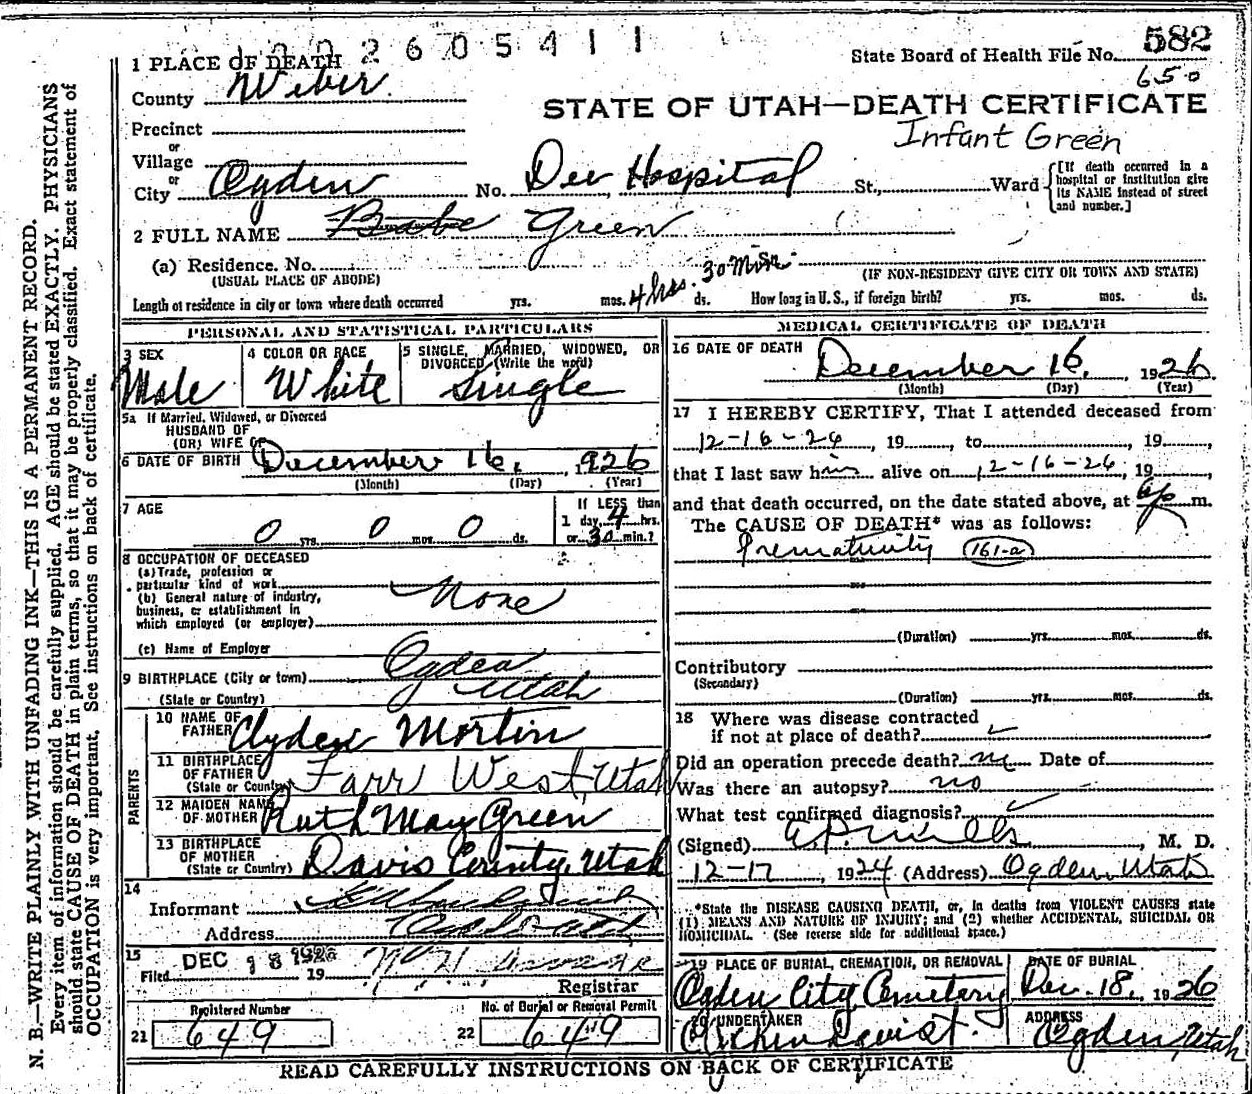 2605411
State Board of Health File No. 582
650
1 PLACE OF DEATH
County Weber
STATE OF UTAH—DEATH CERTIFICATE
Infant Green
Precinct
or
Village
or
City Ogden No. Dee Hospital St., Ward
[If death occurred in a hospital or institution give its NAME instead of street and number.]
2 FULL NAME Babe Green
(a) Residence. No.
(USUAL PLACE OF ABODE) (IF NON-RESIDENT GIVE CITY OR TOWN AND STATE)
Length of residence in city or town where death occurred yrs. mos. 4 hrs. 30 Mins. ds. How long in U.S., if foreign birth? yrs. mos. ds.
PERSONAL AND STATISTICAL PARTICULARS
3 SEX Male
4 COLOR OR RACE White
5 SINGLE, MARRIED, WIDOWED, OR DIVORCED (Write the word) Single
5a If Married, Widowed, or Divorced
HUSBAND OF
(OR) WIFE OF
6 DATE OF BIRTH December 16, 1926
(Month) (Day) (Year)
7 AGE 0 yrs. 0 mos. 0 ds.
If LESS than
1 day, 4 hrs.
or 30 min.?
8 OCCUPATION OF DECEASED
(a) Trade, profession or
particular kind of work
(b) General nature of industry,
business, or establishment in
which employed (or employer) None
(c) Name of Employer
9 BIRTHPLACE (City or town) Ogden
(State or Country) Utah
PARENTS
10 NAME OF FATHER Clyden Mortin
11 BIRTHPLACE OF FATHER (State or Country) Farr West Utah
12 MAIDEN NAME OF MOTHER Ruth May Green
13 BIRTHPLACE OF MOTHER (State or Country) Davis County, Utah
14
Informant
Address
15
Filed DEC 18 1926 19
Registrar
Registered Number
21 649
No. of Burial or Removal Permit
22 649
MEDICAL CERTIFICATE OF DEATH
16 DATE OF DEATH December 16, 1926
(Month) (Day) (Year)
17 I HEREBY CERTIFY, That I attended deceased from
12-16-26, 19 to , 19 ,
that I last saw him alive on 12-16-26, 19
and that death occurred, on the date stated above, at m.
The CAUSE OF DEATH* was as follows:
Prematurity 161-a
(Duration) yrs. mos. ds.
Contributory
(Secondary)
(Duration) yrs. mos. ds.
18 Where was disease contracted
if not at place of death?
Did an operation precede death? no Date of
Was there an autopsy? no
What test confirmed diagnosis?
(Signed) , M. D.
12-17, 1924 (Address) Ogden, Utah
*State the DISEASE CAUSING DEATH, or, in deaths from VIOLENT CAUSES state
(1) MEANS AND NATURE OF INJURY; and (2) whether ACCIDENTAL, SUICIDAL OR
HOMICIDAL. (See reverse side for additional space.)
19 PLACE OF BURIAL, CREMATION, OR REMOVAL
Ogden City Cemetery
DATE OF BURIAL
Dec. 18, 1926
20 UNDERTAKER
ADDRESS
Ogden, Utah
READ CAREFULLY INSTRUCTIONS ON BACK OF CERTIFICATE
N. B.—WRITE PLAINLY WITH UNFADING INK—THIS IS A PERMANENT RECORD.
Every item of information should be carefully supplied. AGE should be stated EXACTLY. PHYSICIANS
should state CAUSE OF DEATH in plain terms, so that it may be properly classified. Exact statement of
OCCUPATION is very important. See instructions on back of certificate.